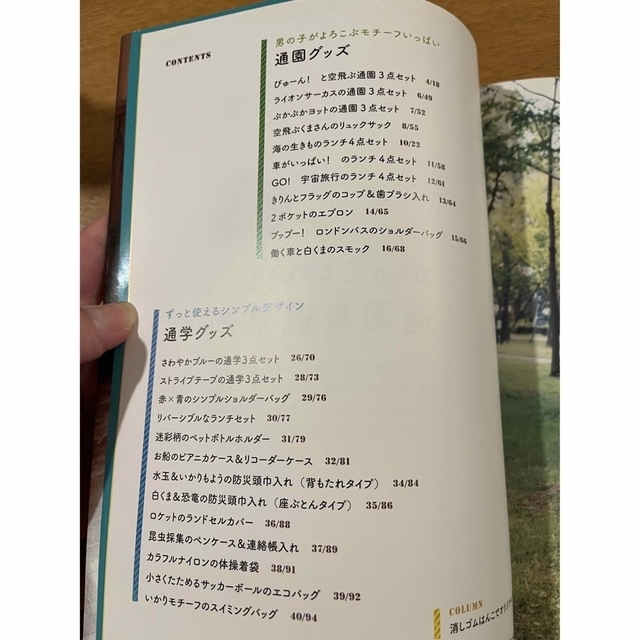 CONTENTS
男の子がよろこぶモチーフいっぱい
通園グッズ
ぴゅーん! と空飛ぶ通園3点セット 4/18
ライオンサーカスの通園3点セット 6/49
ぷかぷかヨットの通園3点セット 7/52
空飛ぶくまさんのリュックサック 8/55
海の生きものランチ4点セット 10/22
車がいっぱい! のランチ4点セット 11/58
GO! 宇宙旅行のランチ4点セット 12/61
きりんとフラッグのコップ&歯ブラシ入れ 13/64
2ポケットのエプロン 14/65
ブップー! ロンドンバスのショルダーバッグ 15/66
働く車と白くまのスモック 16/68
ずっと使えるシンプルデザイン
通学グッズ
さわやかブルーの通学3点セット 26/70
ストライプテープの通学3点セット 28/73
赤×青のシンプルショルダーバッグ 29/76
リバーシブルなランチセット 30/77
迷彩柄のペットボトルホルダー 31/79
お船のピアニカケース&リコーダーケース 32/81
水玉&いかりもようの防災頭巾入れ(背もたれタイプ) 34/84
白くま&恐竜の防災頭巾入れ(座ぶとんタイプ) 35/86
ロケットのランドセルカバー 36/88
昆虫採集のペンケース&連絡帳入れ 37/89
カラフルナイロンの体操着袋 38/91
小さくたためるサッカーボールのエコバッグ 39/92
いかりモチーフのスイミングバッグ 40/94
COLUMN
消しゴムはんこで